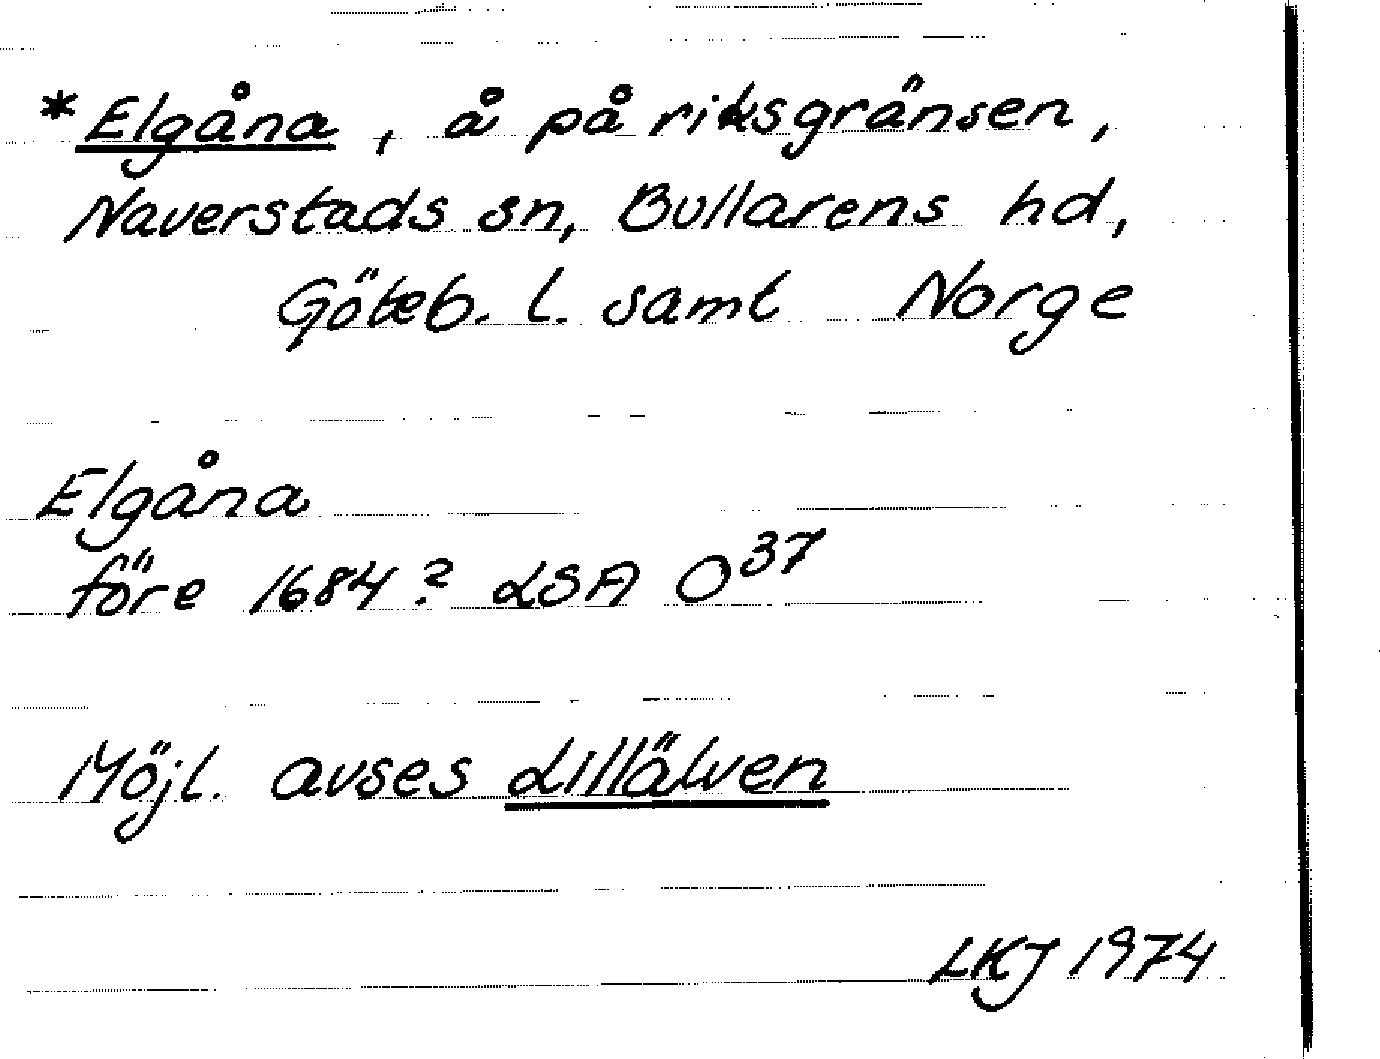 *Elgåna, å på riksgränsen,
Naverstads sn, Bullarens hd,
Göteb. l. samt Norge
Elgåna
före 1684? LSA O37
Möjl. avses Lillälven
LKJ 1974